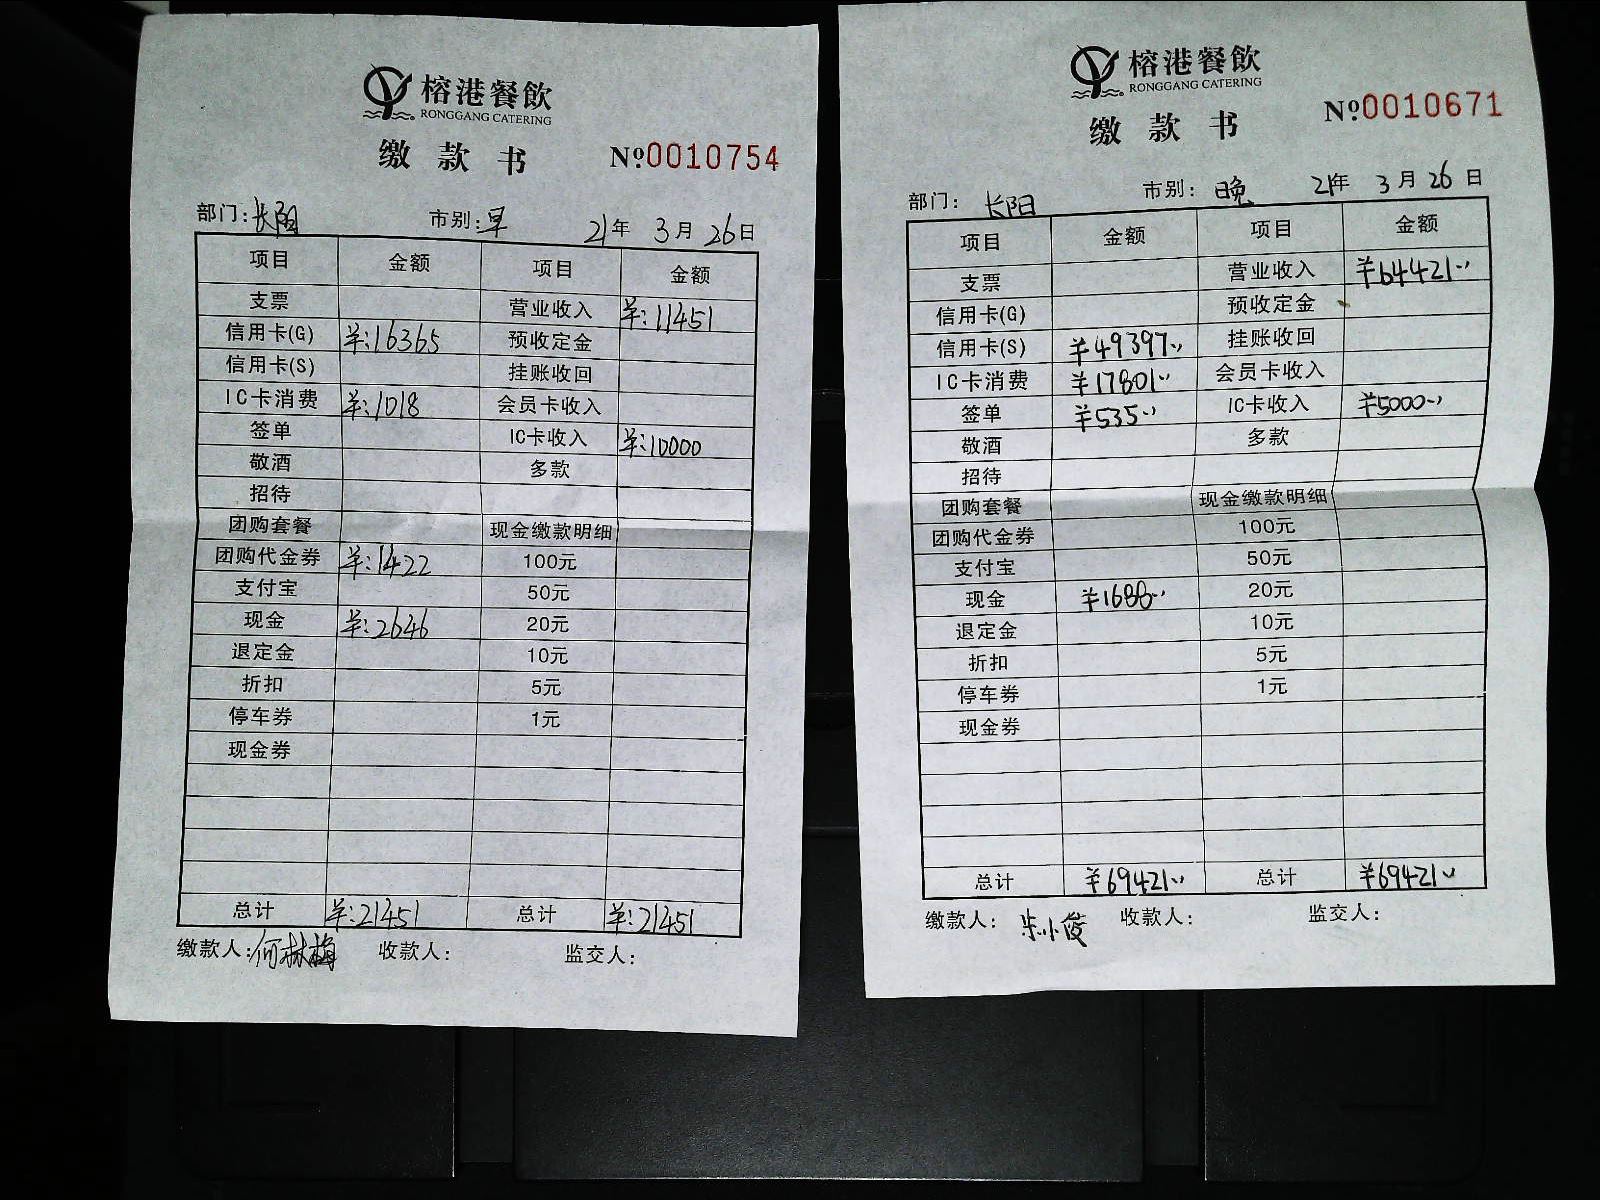 榕港餐飲
RONGGANG CATERING
缴款书 №0010754
部门:长阳 市别:早 21年 3月 26日
项目 金额 项目 金额
支票 营业收入 ¥:11451
信用卡(G) ¥:16365 预收定金
信用卡(S) 挂账收回
IC卡消费 ¥:1018 会员卡收入
签单 IC卡收入 ¥:10000
敬酒 多款
招待
团购套餐 现金缴款明细
团购代金券 ¥:1422 100元
支付宝 50元
现金 ¥:2646 20元
退定金 10元
折扣 5元
停车券 1元
现金券
总计 ¥:21451 总计 ¥:21451
缴款人:何林梅 收款人: 监交人:
榕港餐飲
RONGGANG CATERING
缴款书 №0010671
部门: 长阳 市别: 晚 21年 3月 26日
项目 金额 项目 金额
支票 营业收入 ¥64421..
信用卡(G) 预收定金
信用卡(S) ¥49397.. 挂账收回
IC卡消费 ¥17801.. 会员卡收入
签单 ¥535.. IC卡收入 ¥5000..
敬酒 多款
招待
团购套餐 现金缴款明细
团购代金券 100元
支付宝 50元
现金 ¥1688.. 20元
退定金 10元
折扣 5元
停车券 1元
现金券
总计 ¥69421.. 总计 ¥69421..
缴款人: 朱小俊 收款人: 监交人: